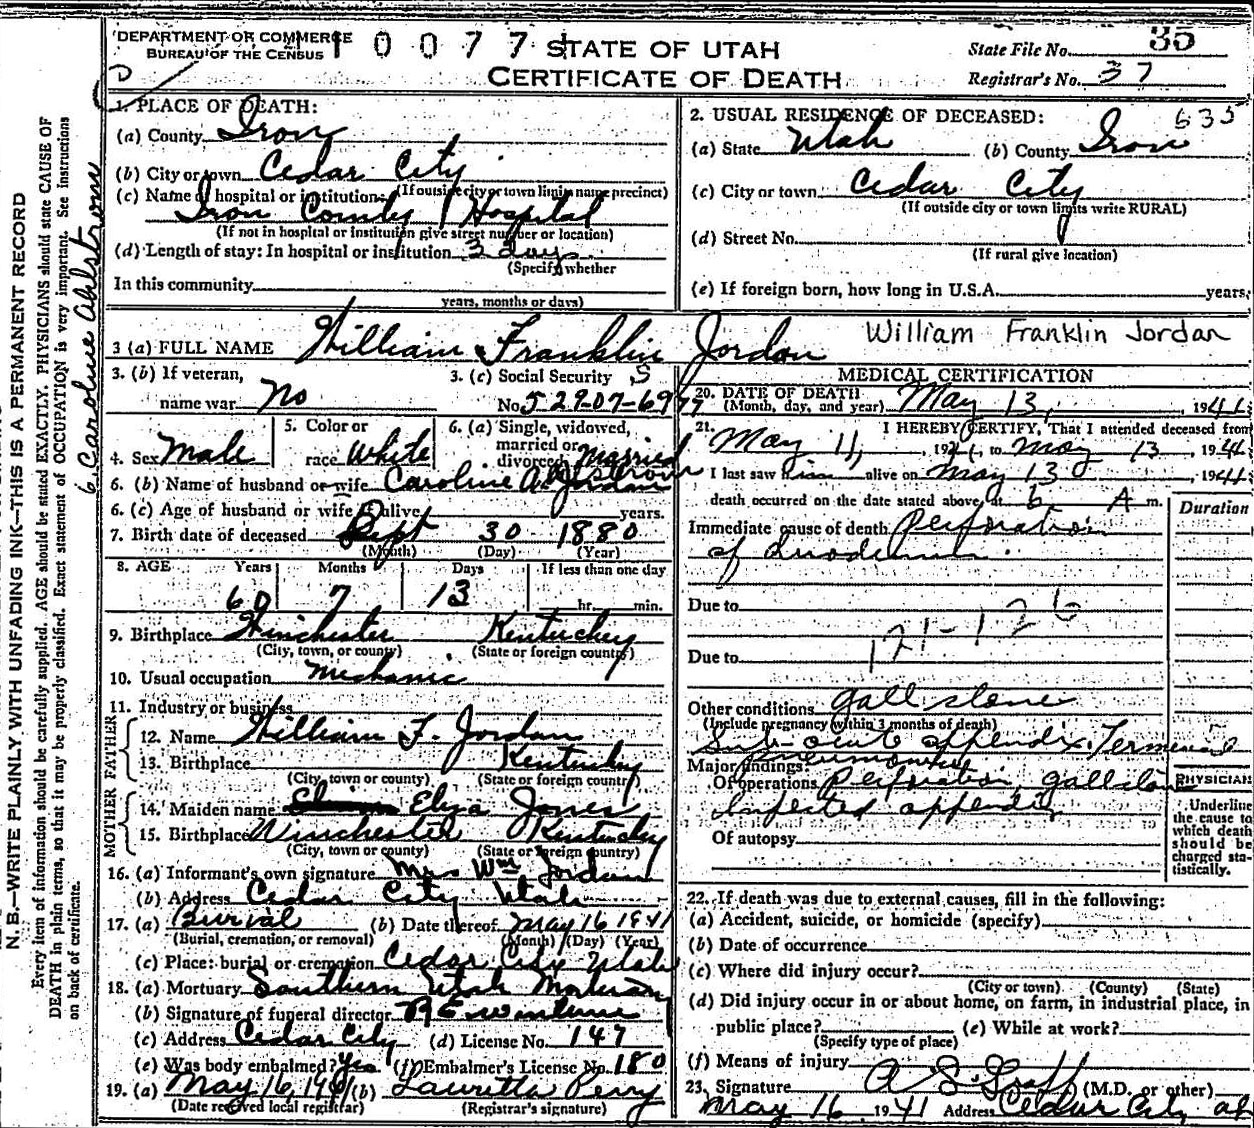 DEPARTMENT OF COMMERCE
BUREAU OF THE CENSUS
1 0 0 7 7
STATE OF UTAH
CERTIFICATE OF DEATH
State File No. 35
Registrar's No. 37
1. PLACE OF DEATH:
(a) County Iron
(b) City or town Cedar City
(If outside city or town limits name precinct)
(c) Name of hospital or institution:
Iron County Hospital
(If not in hospital or institution give street number or location)
(d) Length of stay: In hospital or institution 3 days
(Specify whether
In this community
years, months or days)
2. USUAL RESIDENCE OF DECEASED: 635
(a) State Utah (b) County Iron
(c) City or town Cedar City
(If outside city or town limits write RURAL)
(d) Street No.
(If rural give location)
(e) If foreign born, how long in U.S.A. years.
3 (a) FULL NAME William Franklin Jordan William Franklin Jordan
3. (b) If veteran,
name war No
3. (c) Social Security
No. 529-07-69
4. Sex Male
5. Color or
race White
6. (a) Single, widowed,
married or
divorced Married
6. (b) Name of husband or wife Caroline A. Jordan
6. (c) Age of husband or wife if alive years.
7. Birth date of deceased Sept 30 1880
(Month) (Day) (Year)
8. AGE Years Months Days If less than one day
60 7 13 hr. min.
9. Birthplace Winchester Kentuckey
(City, town, or county) (State or foreign country)
10. Usual occupation Mechanic
11. Industry or business
FATHER
12. Name William F. Jordan
13. Birthplace Kentucky
(City, town or county) (State or foreign country)
MOTHER
14. Maiden name Eliza Jones
15. Birthplace Winchester Kentuckey
(City, town or county) (State or foreign country)
16. (a) Informant's own signature Mrs Wm Jordan
(b) Address Cedar City Utah
17. (a) Burial (b) Date thereof May 16 1941
(Burial, cremation, or removal) (Month) (Day) (Year)
(c) Place: burial or cremation Cedar City Utah
18. (a) Mortuary Southern Utah Mortuary
(b) Signature of funeral director
(c) Address Cedar City (d) License No. 147
(e) Was body embalmed? Yes (f) Embalmer's License No. 180
19. (a) May 16, 1941 (b) Lauretta Perry
(Date received local registrar) (Registrar's signature)
MEDICAL CERTIFICATION
20. DATE OF DEATH
(Month, day, and year) May 13, 1941
21. I HEREBY CERTIFY, That I attended deceased from
May 11, 1941, to May 13 1941
I last saw him alive on May 13 1941
death occurred on the date stated above at 6 A m.
Duration
Immediate cause of death Perforation
of duodenum.
Due to
121-126
Due to
Other conditions gall stone
(Include pregnancy within 3 months of death)
Sub-acute appendix. Terminal
pneumonia
Major findings:
Of operations Perforation, gallstone
Infected appendix
Of autopsy
PHYSICIAN
Underline
the cause to
which death
should be
charged sta-
tistically.
22. If death was due to external causes, fill in the following:
(a) Accident, suicide, or homicide (specify)
(b) Date of occurrence
(c) Where did injury occur?
(City or town) (County) (State)
(d) Did injury occur in or about home, on farm, in industrial place, in
public place? (e) While at work?
(Specify type of place)
(f) Means of injury
23. Signature A S Graff (M.D. or other)
May 16 1941 Address Cedar City
N. B.—WRITE PLAINLY WITH UNFADING INK—THIS IS A PERMANENT RECORD
Every item of information should be carefully supplied. AGE should be stated EXACTLY. PHYSICIANS should state CAUSE OF
DEATH in plain terms, so that it may be properly classified. Exact statement of OCCUPATION is very important. See instructions
on back of certificate.
6. Caroline Ahlstrom